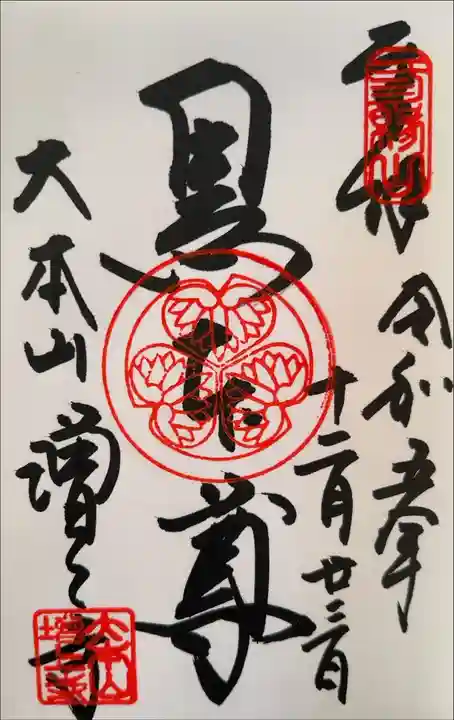 奉拝
三縁山
令和五年
十二月廿三日
黒本尊
大本山増上寺
大本山
増上寺